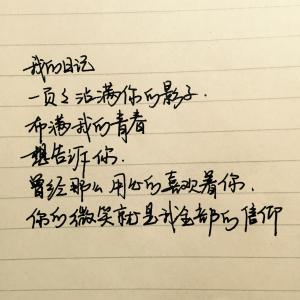 我的日记
一页々沾满你的影子.
布满我的青春
想告诉你.
曾经那么用心的喜欢着你.
你的微笑就是我全部的信仰